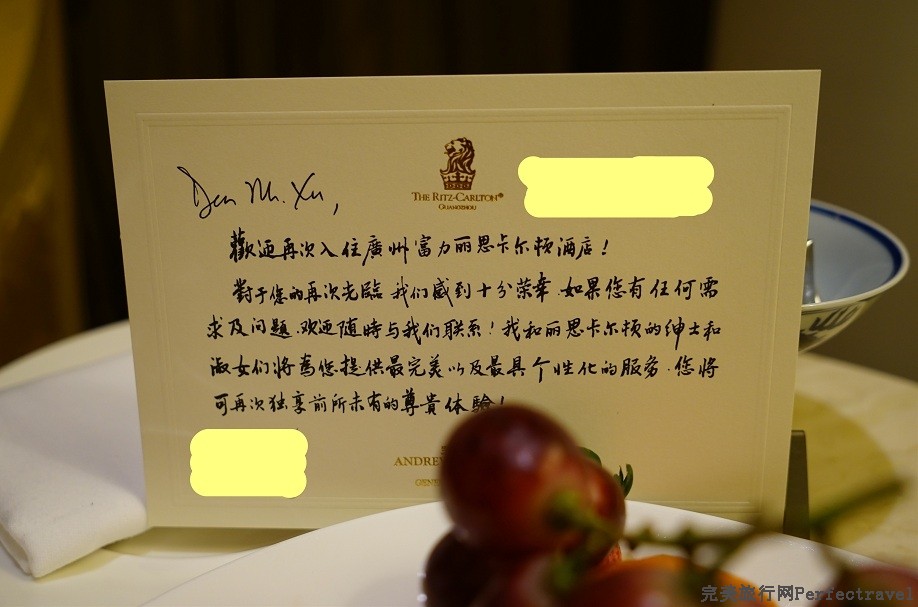 THE RITZ-CARLTON®
GUANGZHOU
Dear Mr. Xu,
歡迎再次入住廣州富力丽思卡尔顿酒店！
對于您的再次光臨,我们感到十分荣幸.如果您有任何需
求及问题,欢迎随時与我们联系！我和丽思卡尔顿的绅士和
淑女们將為您提供最完美以及最具个性化的服务.您将
可再次独享前所未有的尊貴体驗！
ANDREW
GENE
完美旅行网Perfectravel